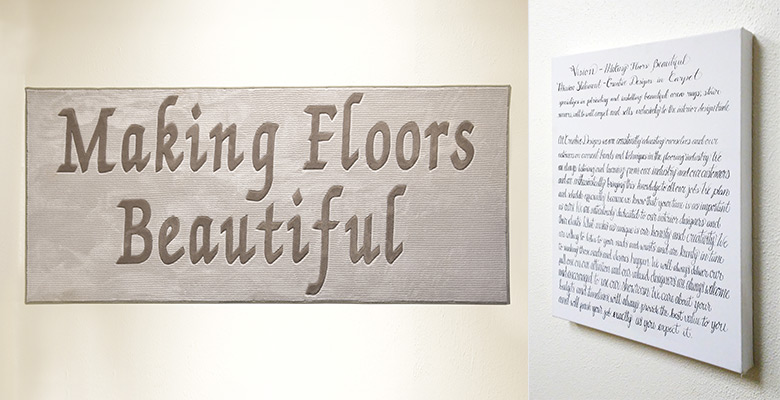 Making Floors
Beautiful
Vision - Making Floors Beautiful
Mission Statement - Creative Designs in Carpet
specializes in providing and installing beautiful area rugs, stair
runners, wall to wall carpet and sells exclusively to the interior design trade
At Creative Designs we are constantly educating ourselves and our
customers on current trends and techniques in the flooring industry. We
are always listening and learning from our industry and our customers
and enthusiastically bringing this knowledge to all our jobs. We plan
and schedule efficiently because we know that your time is as important
as ours. We are intensively dedicated to our interior designers and
their clients. What makes us unique is our honesty and creativity. We
are willing to listen to your needs and wants and are keenly in tune
to making these needs and desires happen. We will always deliver our
full on our attention and our valued designers are always welcome
and encouraged to use our showroom. We care about your
budgets and timelines, will always provide the best value to you
and will finish your job exactly as you expect it.